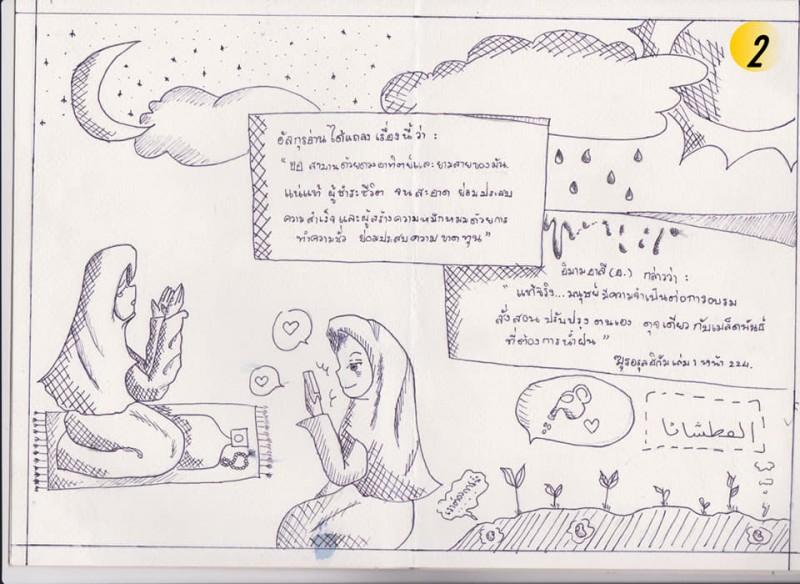 2
อัลกุรอ่าน ได้แถลง เรื่องนี้ ว่า :
"ขอ สาบานด้วยดวงอาทิตย์และยามสายของมัน
แน่แท้ ผู้ชำระชีวิต จน สะอาด ย่อมประสบ
ความสำเร็จ และผู้สร้างความหมักหมมด้วยการ
ทำความชั่ว ย่อมประสบความ ขาดทุน"
อิมามอาลี (อ.) กล่าวว่า :
"แท้จริง... มนุษย์ มีความจำเป็นต่อการอบรม
สั่งสอน ปรับปรุง ตนเอง ดุจเดียว กับเมล็ดพันธุ์
ที่ต้องการ น้ำฝน"
ฆุรอรุลฮิกัม เล่ม 1 หน้า 224.